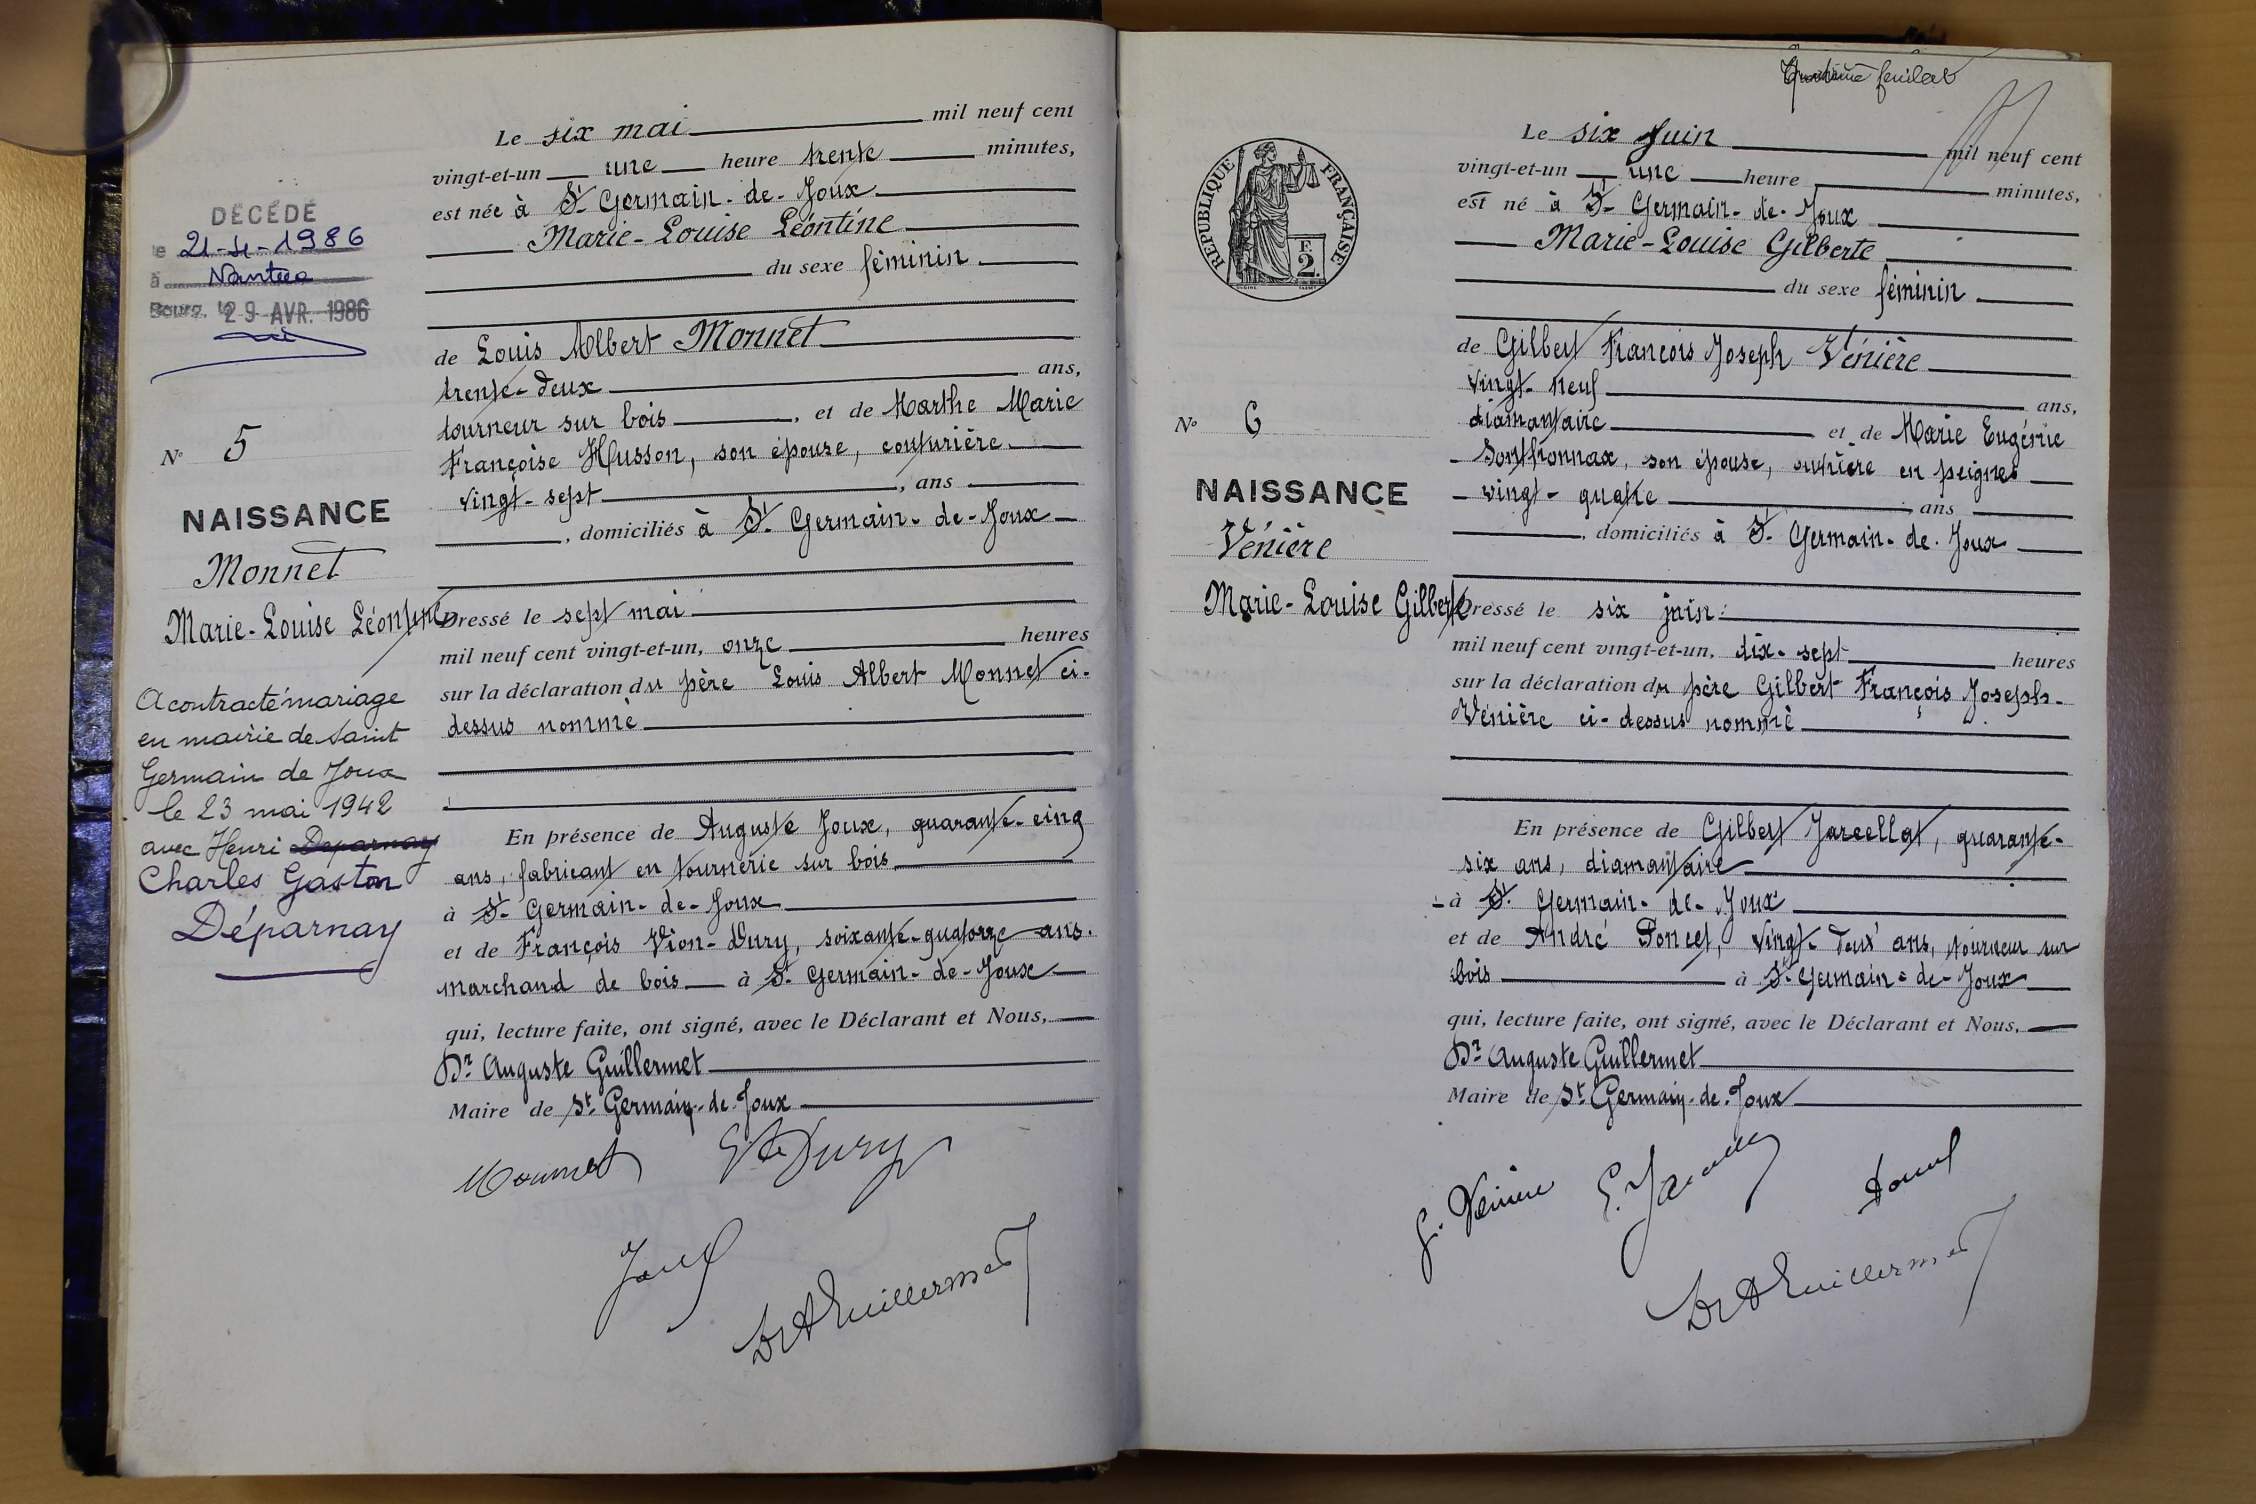 DÉCÉDÉ
le 21-4-1986
à Nantua
Bourg, le 29 AVR. 1986
N° 5
NAISSANCE
Monnet
Marie-Louise Léontine
A contracté mariage
en mairie de Saint
Germain de Joux
le 23 mai 1942
avec Henri Deparnay
Charles Gaston
Déparnay
Le six mai mil neuf cent
vingt-et-un une heure trente minutes,
est née à St Germain-de-Joux
Marie-Louise Léontine
du sexe féminin
de Louis Albert Monnet
trente-deux ans,
tourneur sur bois, et de Marthe Marie
Françoise Husson, son épouse, couturière
vingt-sept, ans
, domiciliés à St Germain-de-Joux
Dressé le sept mai
mil neuf cent vingt-et-un, onze heures
sur la déclaration du père Louis Albert Monnet ci-
dessus nommé
En présence de Auguste Joux, quarante-cinq
ans, fabricant en tournerie sur bois
à St Germain-de-Joux
et de François Vion-Dury, soixante-quatorze ans.
marchand de bois à St Germain-de-Joux
qui, lecture faite, ont signé, avec le Déclarant et Nous,
Dr Auguste Guillermet
Maire de St Germain-de-Joux
Monnet
Dury
Joux
Dr A Guillermet
feuillet
RÉPUBLIQUE FRANÇAISE
F.
2.
N° 6
NAISSANCE
Vénière
Marie-Louise Gilberte
Le six Juin mil neuf cent
vingt-et-un une heure minutes,
est né à St Germain-de-Joux
Marie-Louise Gilberte
du sexe féminin
de Gilbert François Joseph Vénière
vingt-neuf ans,
diamantaire et de Marie Eugénie
Sonthonnax, son épouse, ouvrière en peignes
vingt-quatre ans
, domiciliés à St Germain-de-Joux
Dressé le six juin
mil neuf cent vingt-et-un, dix-sept heures
sur la déclaration du père Gilbert François Joseph
Vénière ci-dessus nommé
En présence de Gilbert Jarcellat, quarante-
six ans, diamantaire
à St Germain-de-Joux
et de André Poncet, vingt-deux ans, tourneur sur
bois à St Germain-de-Joux
qui, lecture faite, ont signé, avec le Déclarant et Nous,
Dr Auguste Guillermet
Maire de St Germain-de-Joux
G. Vénière
Dr A Guillermet